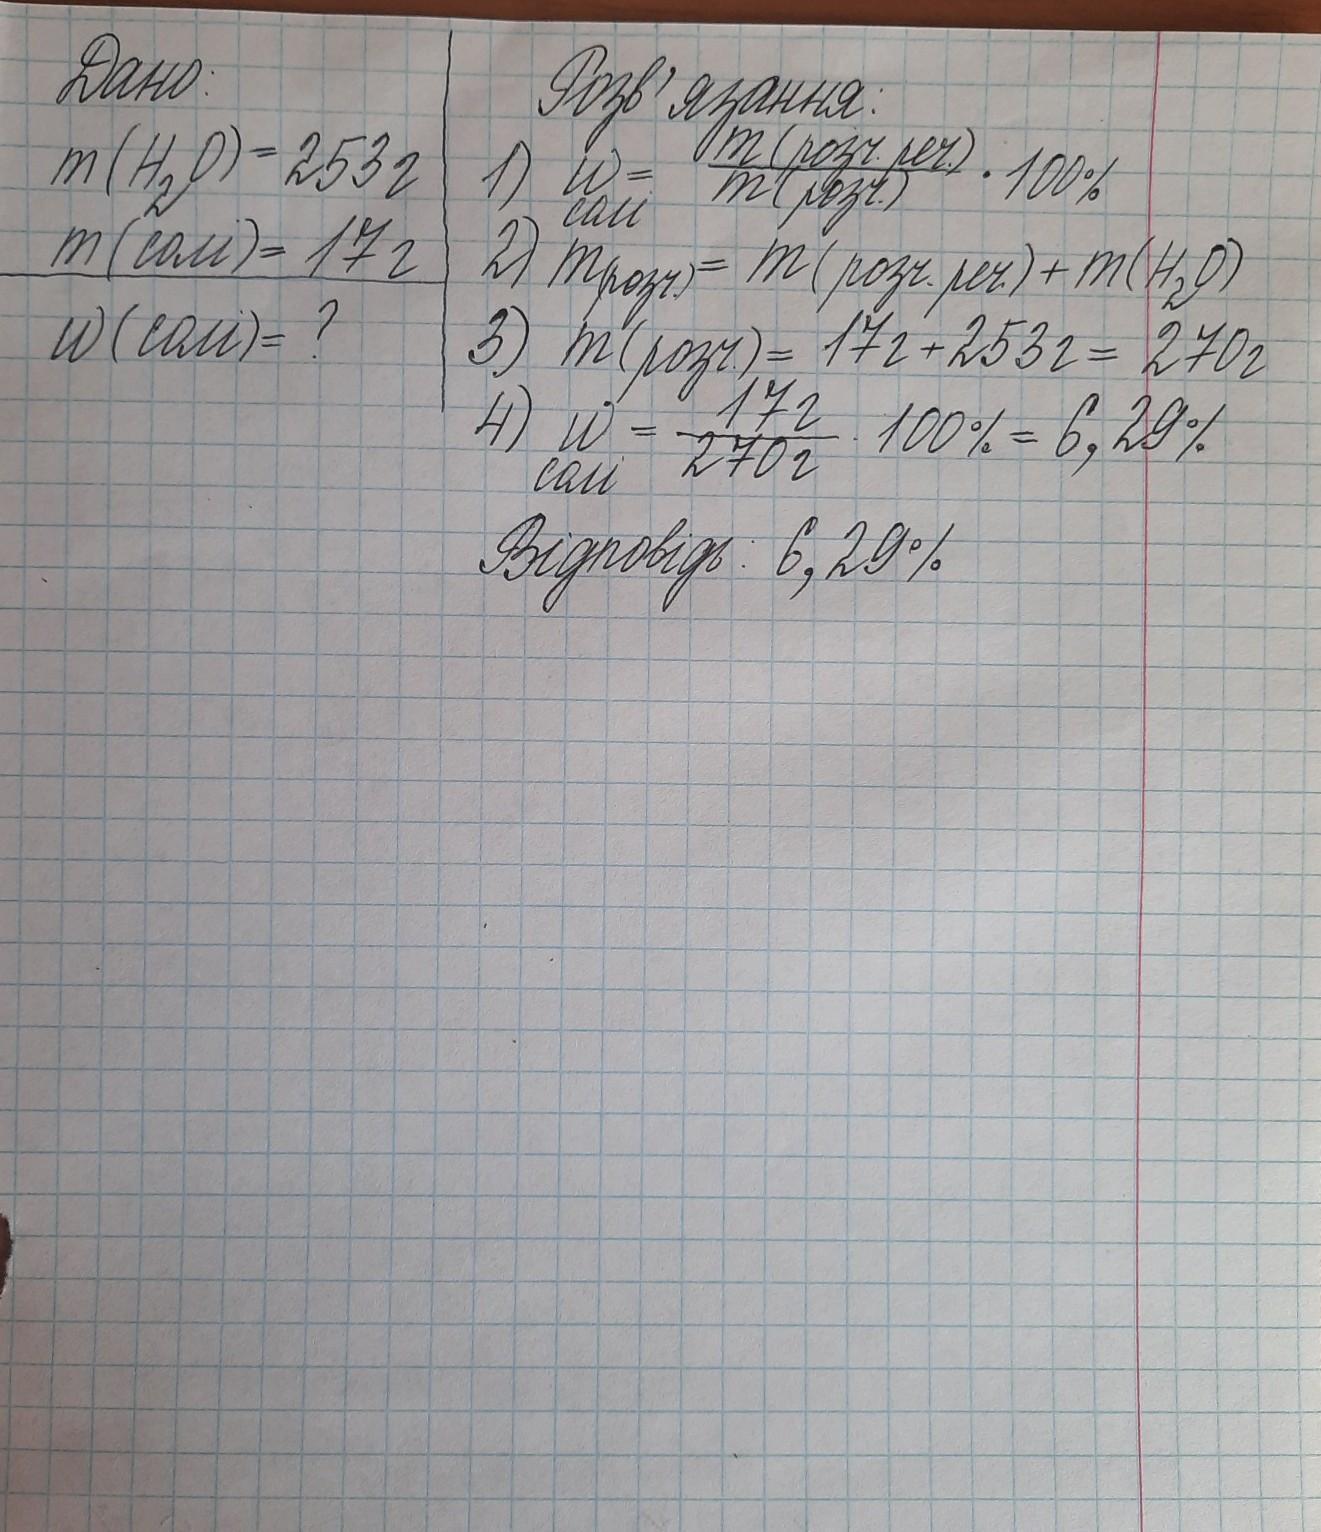 Дано:
m(H₂O) = 253г
m(солі) = 17г
w(солі) = ?
Розв'язання:
1) w солі = m(розч. реч.) / m(розч.) · 100%
2) m(розч.) = m(розч. реч.) + m(H₂O)
3) m(розч.) = 17г + 253г = 270г
4) w солі = 17г / 270г · 100% = 6,29%
Відповідь: 6,29%